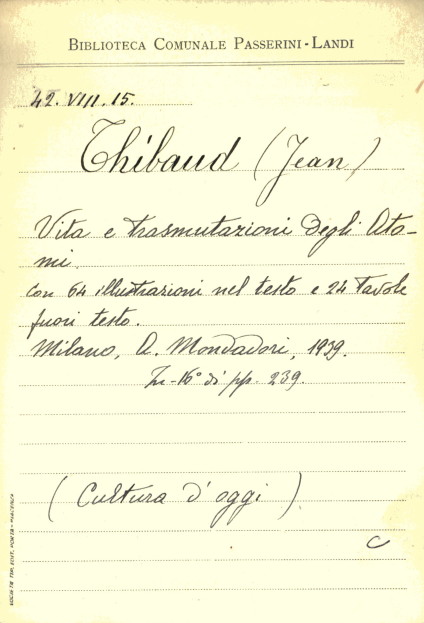 BIBLIOTECA COMUNALE PASSERINI-LANDI
42. VIII. 15.
Thibaud (Jean)
Vita e trasmutazioni degli Ato-
mi.
con 64 illustrazioni nel testo e 24 tavole
fuori testo.
Milano, A. Mondadori, 1939.
In-16° di pp. 239.
(Cultura d'oggi)
C